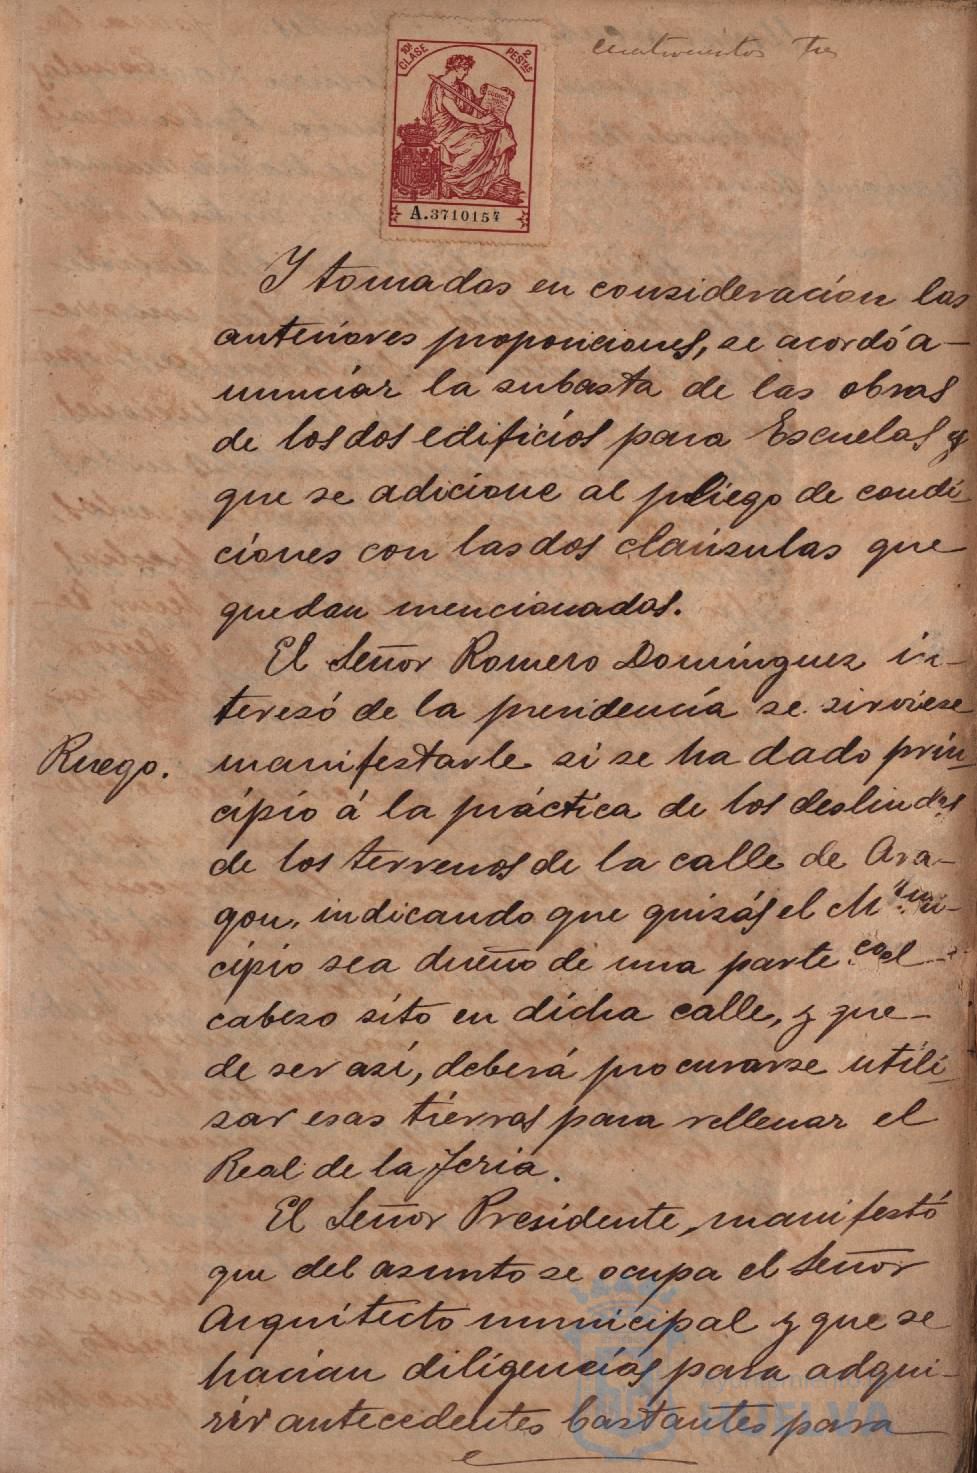 cuatrocientos tres
10ª CLASE
2 PESTAS
A.3710154
Y tomadas en consideración las
anteriores proposiciones, se acordó a-
nunciar la subasta de las obras
de los dos edificios para Escuelas y
que se adicione al pliego de condi-
ciones con las dos claúsulas que
quedan mencionadas.
El Señor Romero Domínguez in-
teresó de la presidencia se sirviese
Ruego.
manifestarle si se ha dado prin-
cipio á la práctica de los deslindes
de los terrenos de la calle de Ara-
gon, indicando que quizás el Muni-
cipio sea dueño de una parte del
cabezo sito en dicha calle, y que-
de ser así, deberá procurarse utili-
zar esas tierras para rellenar el
Real de la Feria.
El Señor Presidente, manifestó
que del asunto se ocupa el Señor
Arquitecto municipal y que se
hacian diligencias para adqui-
rir antecedentes bastantes para
Ayuntamiento de
HUELVA